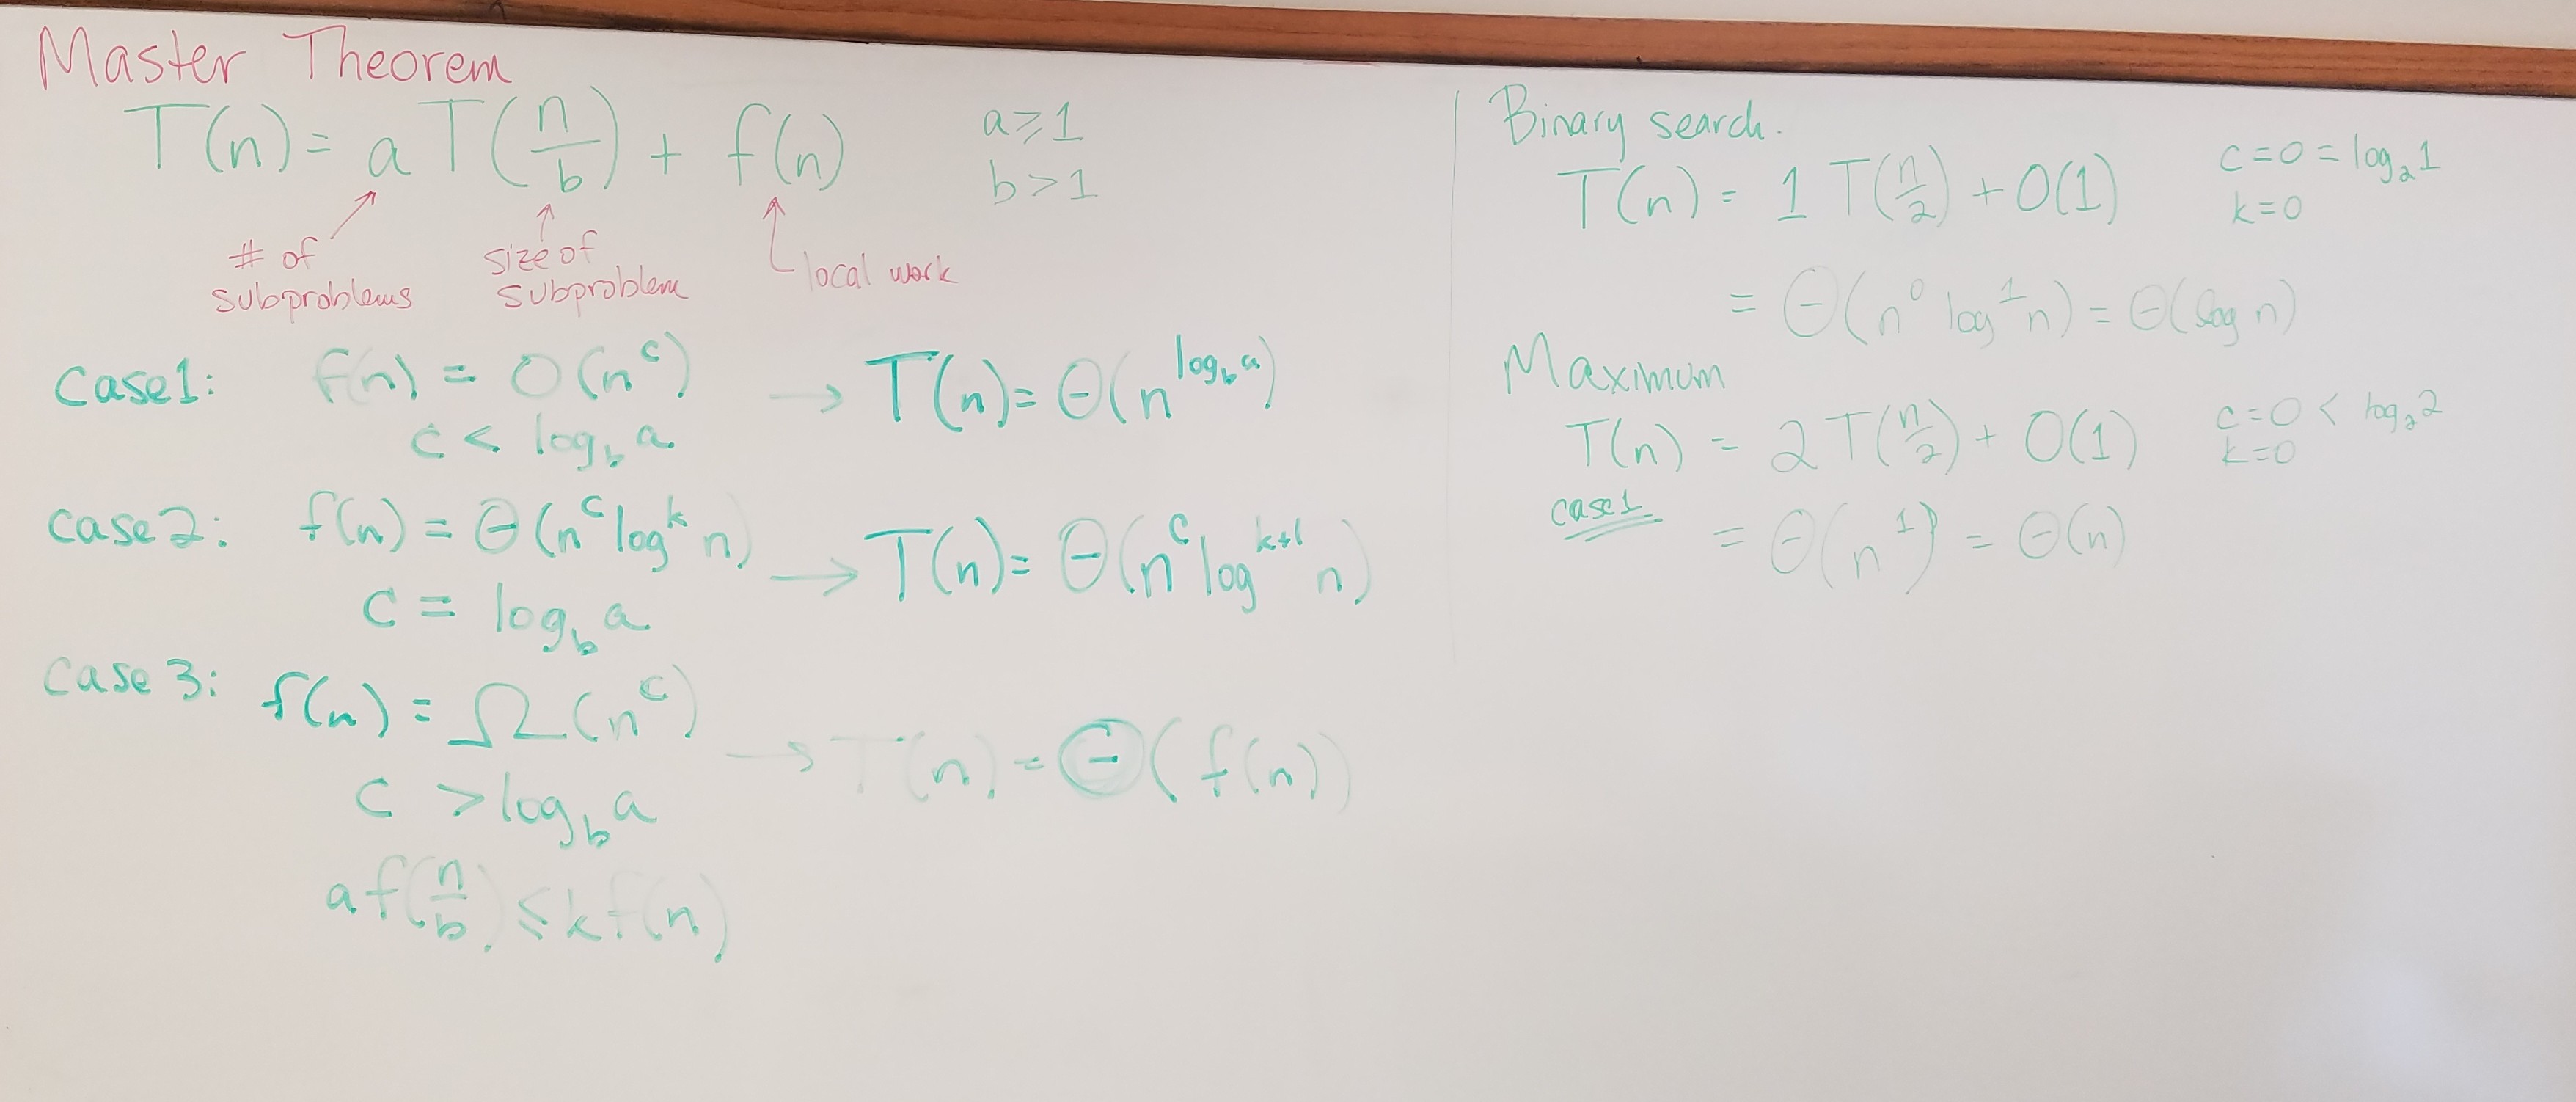 Master Theorem
T(n) = a T(n/b) + f(n)    a ≥ 1
b > 1
# of subproblems
size of subproblem
local work
Case1: f(n) = O(n^c) → T(n) = Θ(n^(log_b a))
c < log_b a
Case2: f(n) = Θ(n^c log^k n) → T(n) = Θ(n^c log^(k+1) n)
c = log_b a
Case 3: f(n) = Ω(n^c) → T(n) = Θ(f(n))
c > log_b a
a f(n/b) ≤ k f(n)
Binary search.
T(n) = 1 T(n/2) + O(1)    c = 0 = log_2 1
k = 0
= Θ(n^0 log^1 n) = Θ(log n)
Maximum
T(n) = 2 T(n/2) + O(1)    c = 0 < log_2 2
k = 0
case1
= Θ(n^1) = Θ(n)